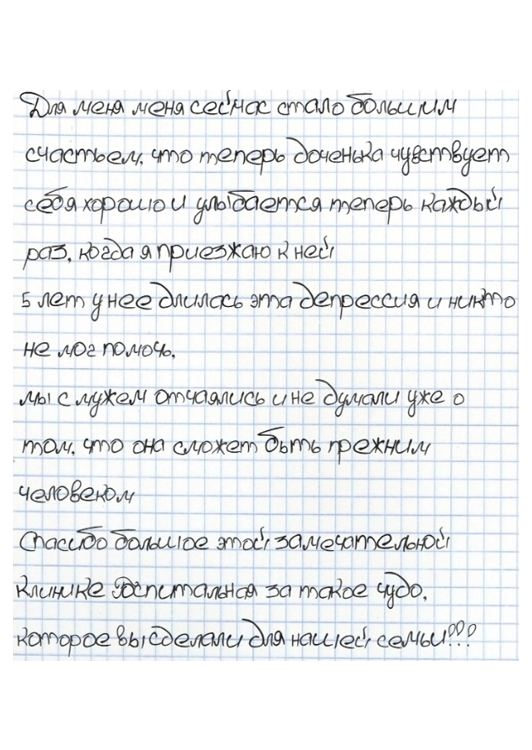 Для меня меня сейчас стало большим
счастьем, что теперь доченька чувствует
себя хорошо и улыбается теперь каждый
раз, когда я приезжаю к ней
5 лет у нее длилась эта депрессия и никто
не мог помочь,
мы с мужем отчаялись и не думали уже о
том, что она сможет быть прежним
человеком
Спасибо большое этой замечательной
клинике Госпитальная за такое чудо,
которое вы сделали для нашей семьи!!!